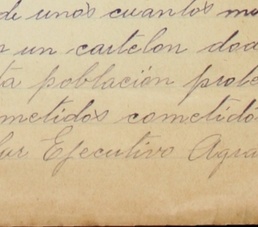 de unos cuantos
un cartelon
población
metidos cometido
Ejecutivo Agra